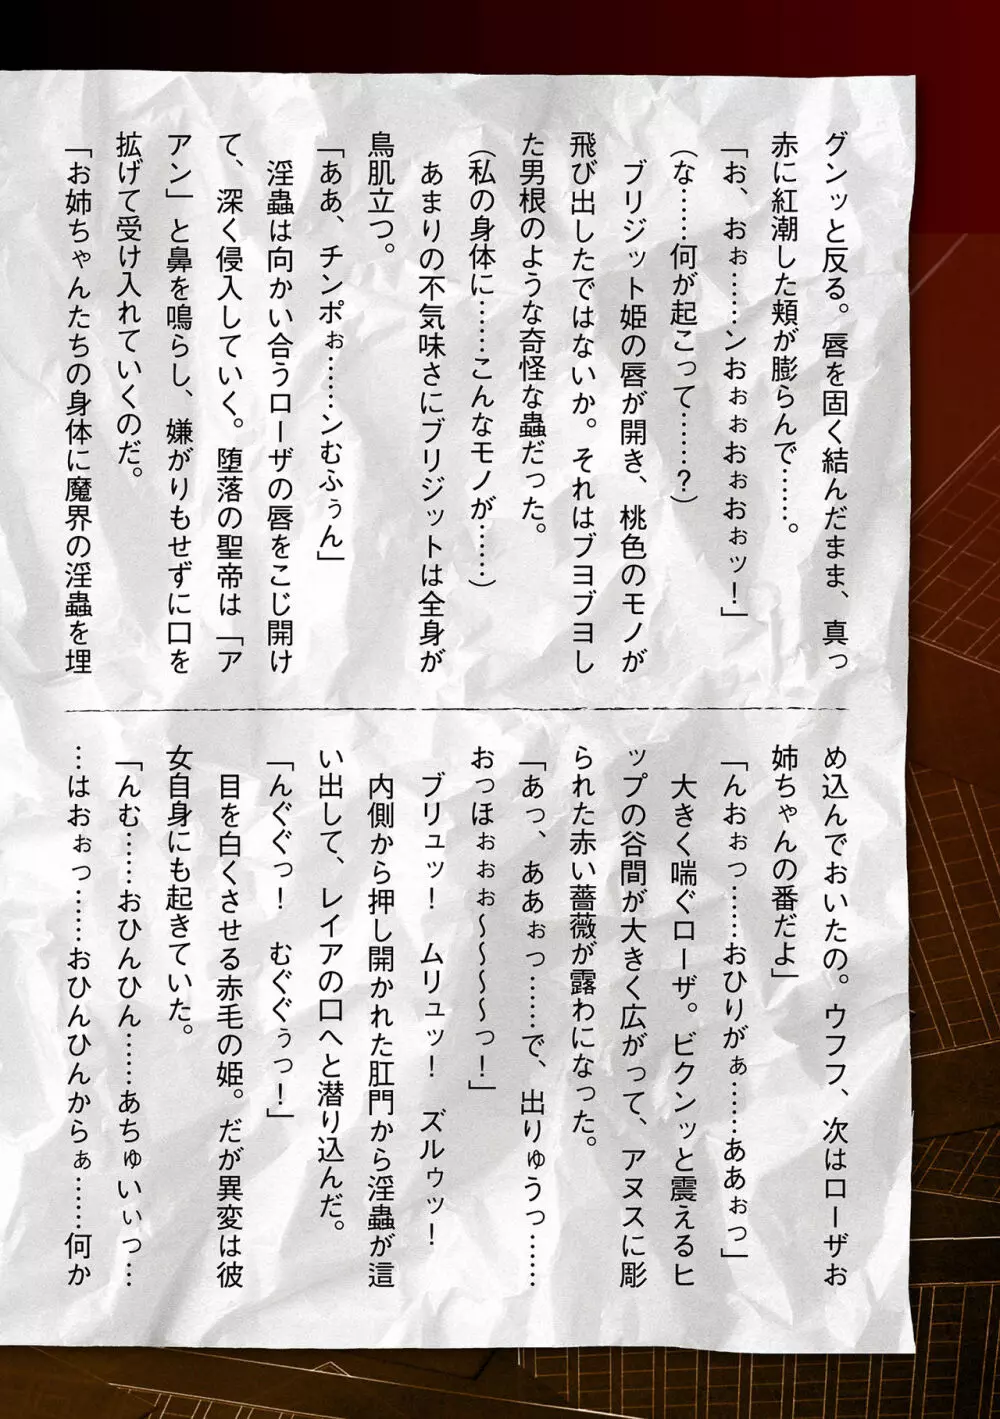 グンッと反る。唇を固く結んだまま、真っ
赤に紅潮した頬が膨らんで……。
「お、おぉ……ンおぉぉおぉおぉッ！」
（な……何が起こって……？）
　ブリジット姫の唇が開き、桃色のモノが
飛び出したではないか。それはブヨブヨし
た男根のような奇怪な蟲だった。
（私の身体に……こんなモノが……）
　あまりの不気味さにブリジットは全身が
鳥肌立つ。
「ああ、チンポぉ……ンむふぅん」
　淫蟲は向かい合うローザの唇をこじ開け
て、深く侵入していく。堕落の聖帝は「ア
アン」と鼻を鳴らし、嫌がりもせずに口を
拡げて受け入れていくのだ。
「お姉ちゃんたちの身体に魔界の淫蟲を埋
め込んでおいたの。ウフフ、次はローザお
姉ちゃんの番だよ」
「んおぉっ……おひりがぁ……ああぉっ」
　大きく喘ぐローザ。ビクンッと震えるヒ
ップの谷間が大きく広がって、アヌスに彫
られた赤い薔薇が露わになった。
「あっ、ああぉっ……で、出りゅうっ……
おっほぉぉぉ〜〜〜〜っ！」
　ブリュッ！　ムリュッ！　ズルゥッ！
　内側から押し開かれた肛門から淫蟲が這
い出して、レイアの口へと潜り込んだ。
「んぐぐっ！　むぐぐぅっ！」
　目を白くさせる赤毛の姫。だが異変は彼
女自身にも起きていた。
「んむ……おひんひん……あちゅいぃっ…
…はおぉっ……おひんひんからぁ……何か